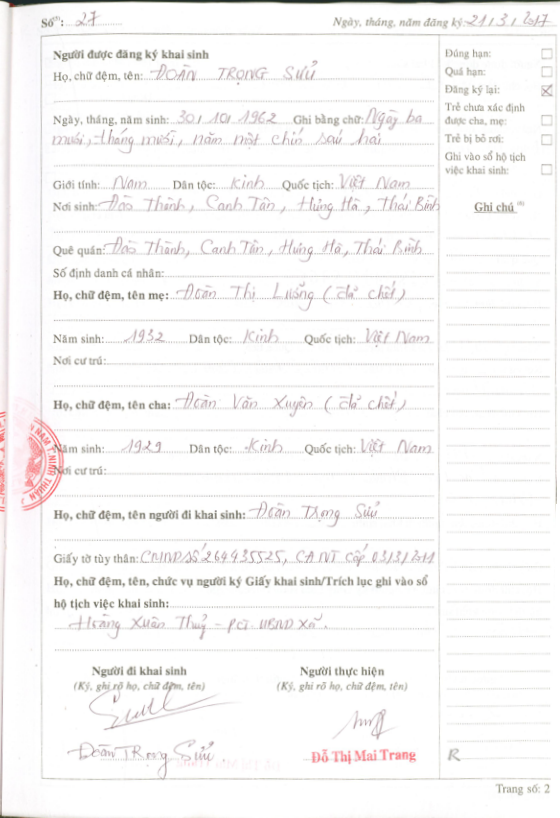 Số: 27
Ngày, tháng, năm đăng ký: 21/3/2017
Người được đăng ký khai sinh
Họ, chữ đệm, tên: ĐOÀN TRỌNG SỬU
Ngày, tháng, năm sinh: 30/10/1962 Ghi bằng chữ: Ngày ba
mươi, tháng mười, năm một chín sáu hai
Giới tính: Nam Dân tộc: Kinh Quốc tịch: Việt Nam
Nơi sinh: Đào Thành, Canh Tân, Hưng Hà, Thái Bình
Quê quán: Đào Thành, Canh Tân, Hưng Hà, Thái Bình
Số định danh cá nhân:
Họ, chữ đệm, tên mẹ: Đoàn Thị Lưỡng (đã chết)
Năm sinh: 1932 Dân tộc: Kinh Quốc tịch: Việt Nam
Nơi cư trú:
Họ, chữ đệm, tên cha: Đoàn Văn Xuyên (đã chết)
Năm sinh: 1929 Dân tộc: Kinh Quốc tịch: Việt Nam
Nơi cư trú:
Họ, chữ đệm, tên người đi khai sinh: Đoàn Trọng Sửu
Giấy tờ tùy thân: CMND số 264435525, CA NT cấp 03/3/2011
Họ, chữ đệm, tên, chức vụ người ký Giấy khai sinh/Trích lục ghi vào sổ
hộ tịch việc khai sinh:
Hoàng Xuân Thuỷ - PCT UBND Xã.
Người đi khai sinh
(Ký, ghi rõ họ, chữ đệm, tên)
Đoàn TRọng Sửu
Người thực hiện
(Ký, ghi rõ họ, chữ đệm, tên)
Đỗ Thị Mai Trang
Đúng hạn:
Quá hạn:
Đăng ký lại:
Trẻ chưa xác định
được cha, mẹ:
Trẻ bị bỏ rơi:
Ghi vào sổ hộ tịch
việc khai sinh:
Ghi chú
R
Trang số: 2